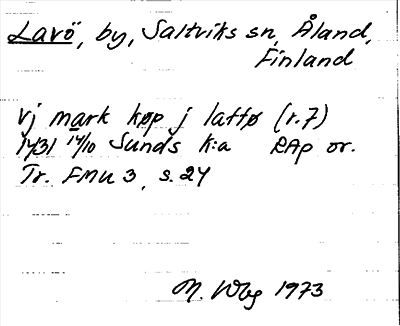 Lavö, by, Saltviks sn, Åland,
Finland
vj mark køp j lattø (r.7)
1431 14/10 Sunds k:a RAp or.
Tr. FMU 3, s. 24
M. Wbg 1973